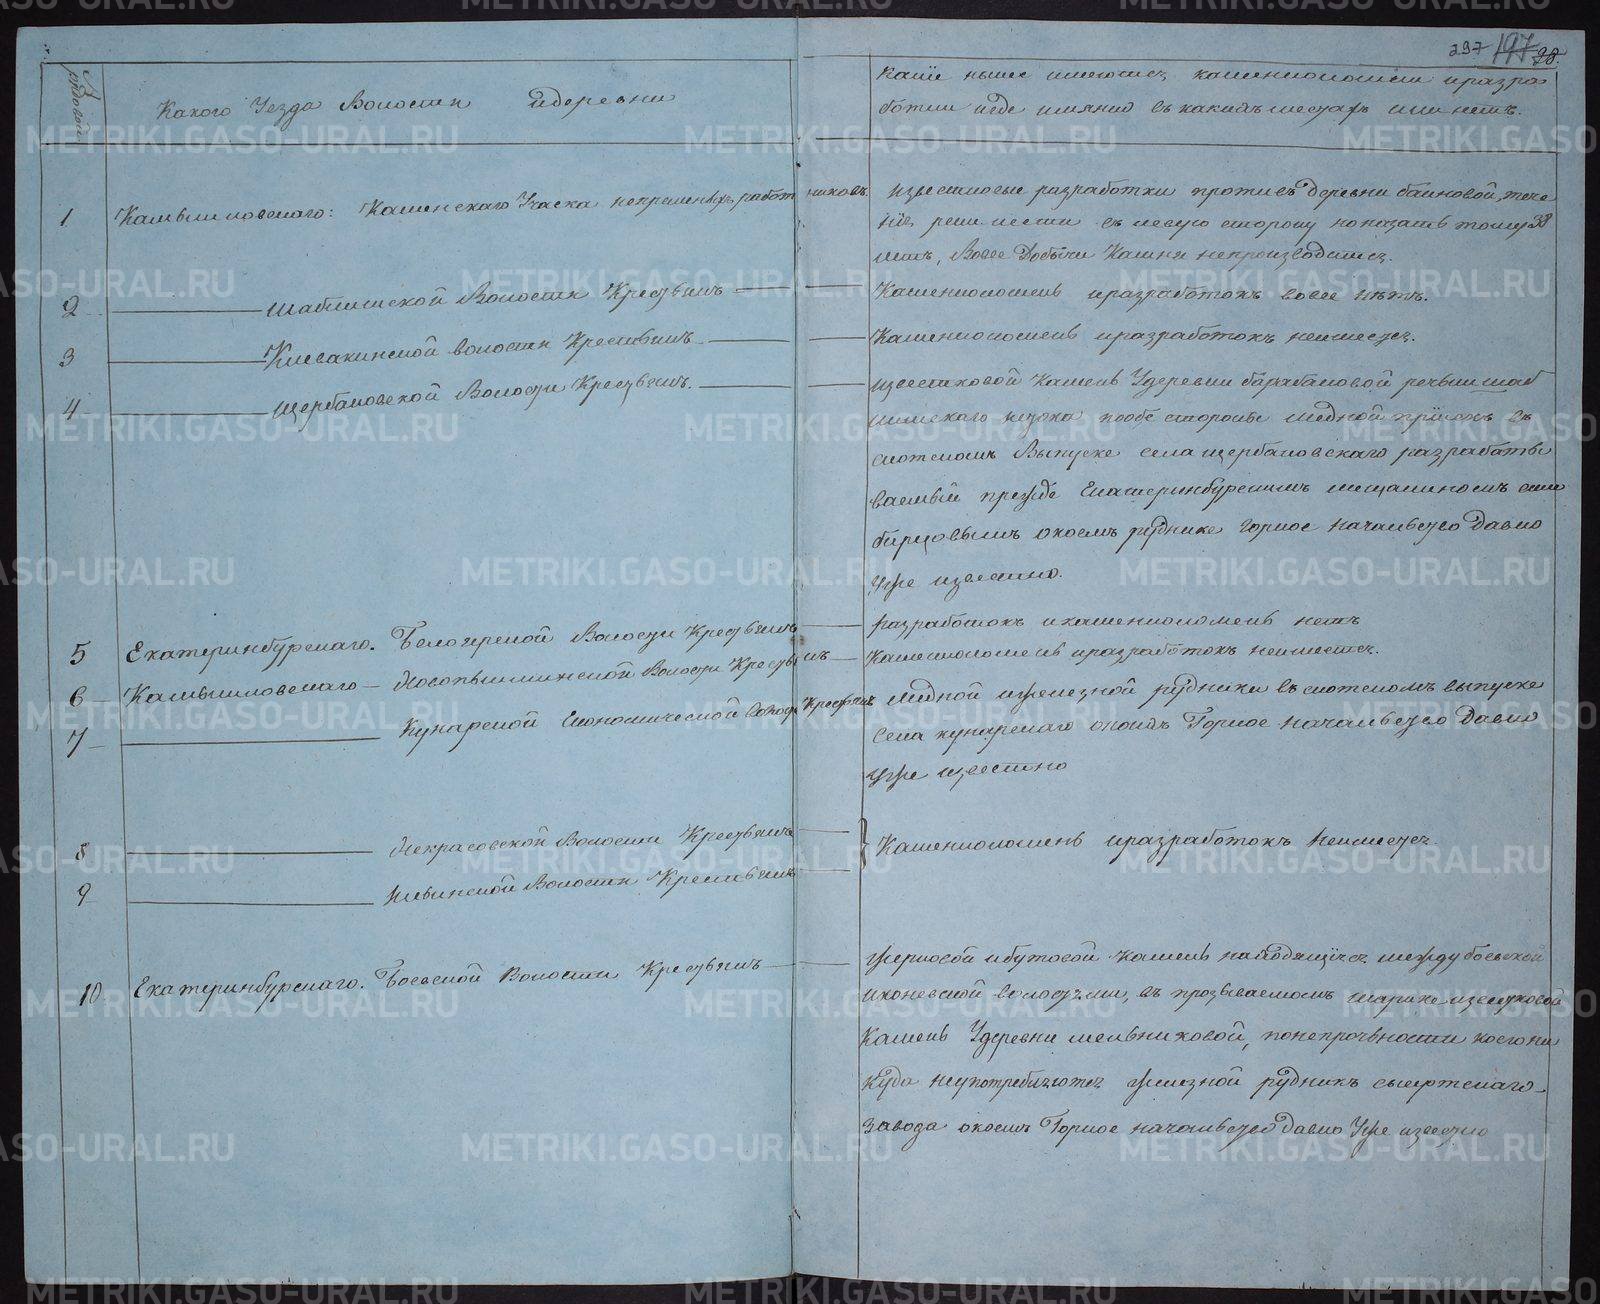 297 197 28.
№ рядовой
Какого Уезда Волости и деревни
Какие ныне имеются каменноломни и разра
ботки и где имянно в каких местах или нетъ.
1 Камышловского: Каменского Участка непременных работниковъ
известковые разработки противъ деревни байновой, тече
ния реки исети в левую сторону но назатъ тому 38
летъ, Вовсе Добычи Камня непроизводится.
2 Шаблишской Волости Крестьянъ
Каменноломенъ и разработокъ вовсе нетъ.
3 Клевакинской волости Крестьянъ
Каменноломенъ и разработокъ неимеется.
4 Щербаковской Волости Крестьянъ.
известковой Камень У деревни барабановой речьки шаб
лишского истока по обе стороны Медной прiискъ въ
скотскомъ Выпуске села щербаковского разрабаты
ваемый прежде Екатеринбургскимъ мещаниномъ
о коемъ руднике горное начальство Давно
Уже известно.
5 Екатеринбургского. Белоярской Волости Крестьянъ
разработокъ и каменноломенъ нетъ
6 Камышловского Новопышминской Волости Крестьянъ
Каменноломенъ и разработокъ неимеется.
7 Кунарской Економической Волости Крестьянъ
Медной и железной рудники въ скотскомъ выпуске
Села кунарского о коихъ Горное Начальство Давно
Уже известно
8 Некрасовской Волости Крестьянъ
Каменноломенъ и разработокъ Неимеется
9 Ильинской Волости Крестьянъ
10 Екатеринбургского. Боевской Волости Крестьянъ
Жерновой и бутовой Камень находящийся между боевской
и коневской волостьми, въ прозываемомъ шарике известковой
Камень У деревни мельниковой, по непрочьности коего ни
куда неупотребляютъ железной рудникъ сысертского
Завода о коемъ Горное начальство Давно Уже известно
METRIKI.GASO-URAL.RU